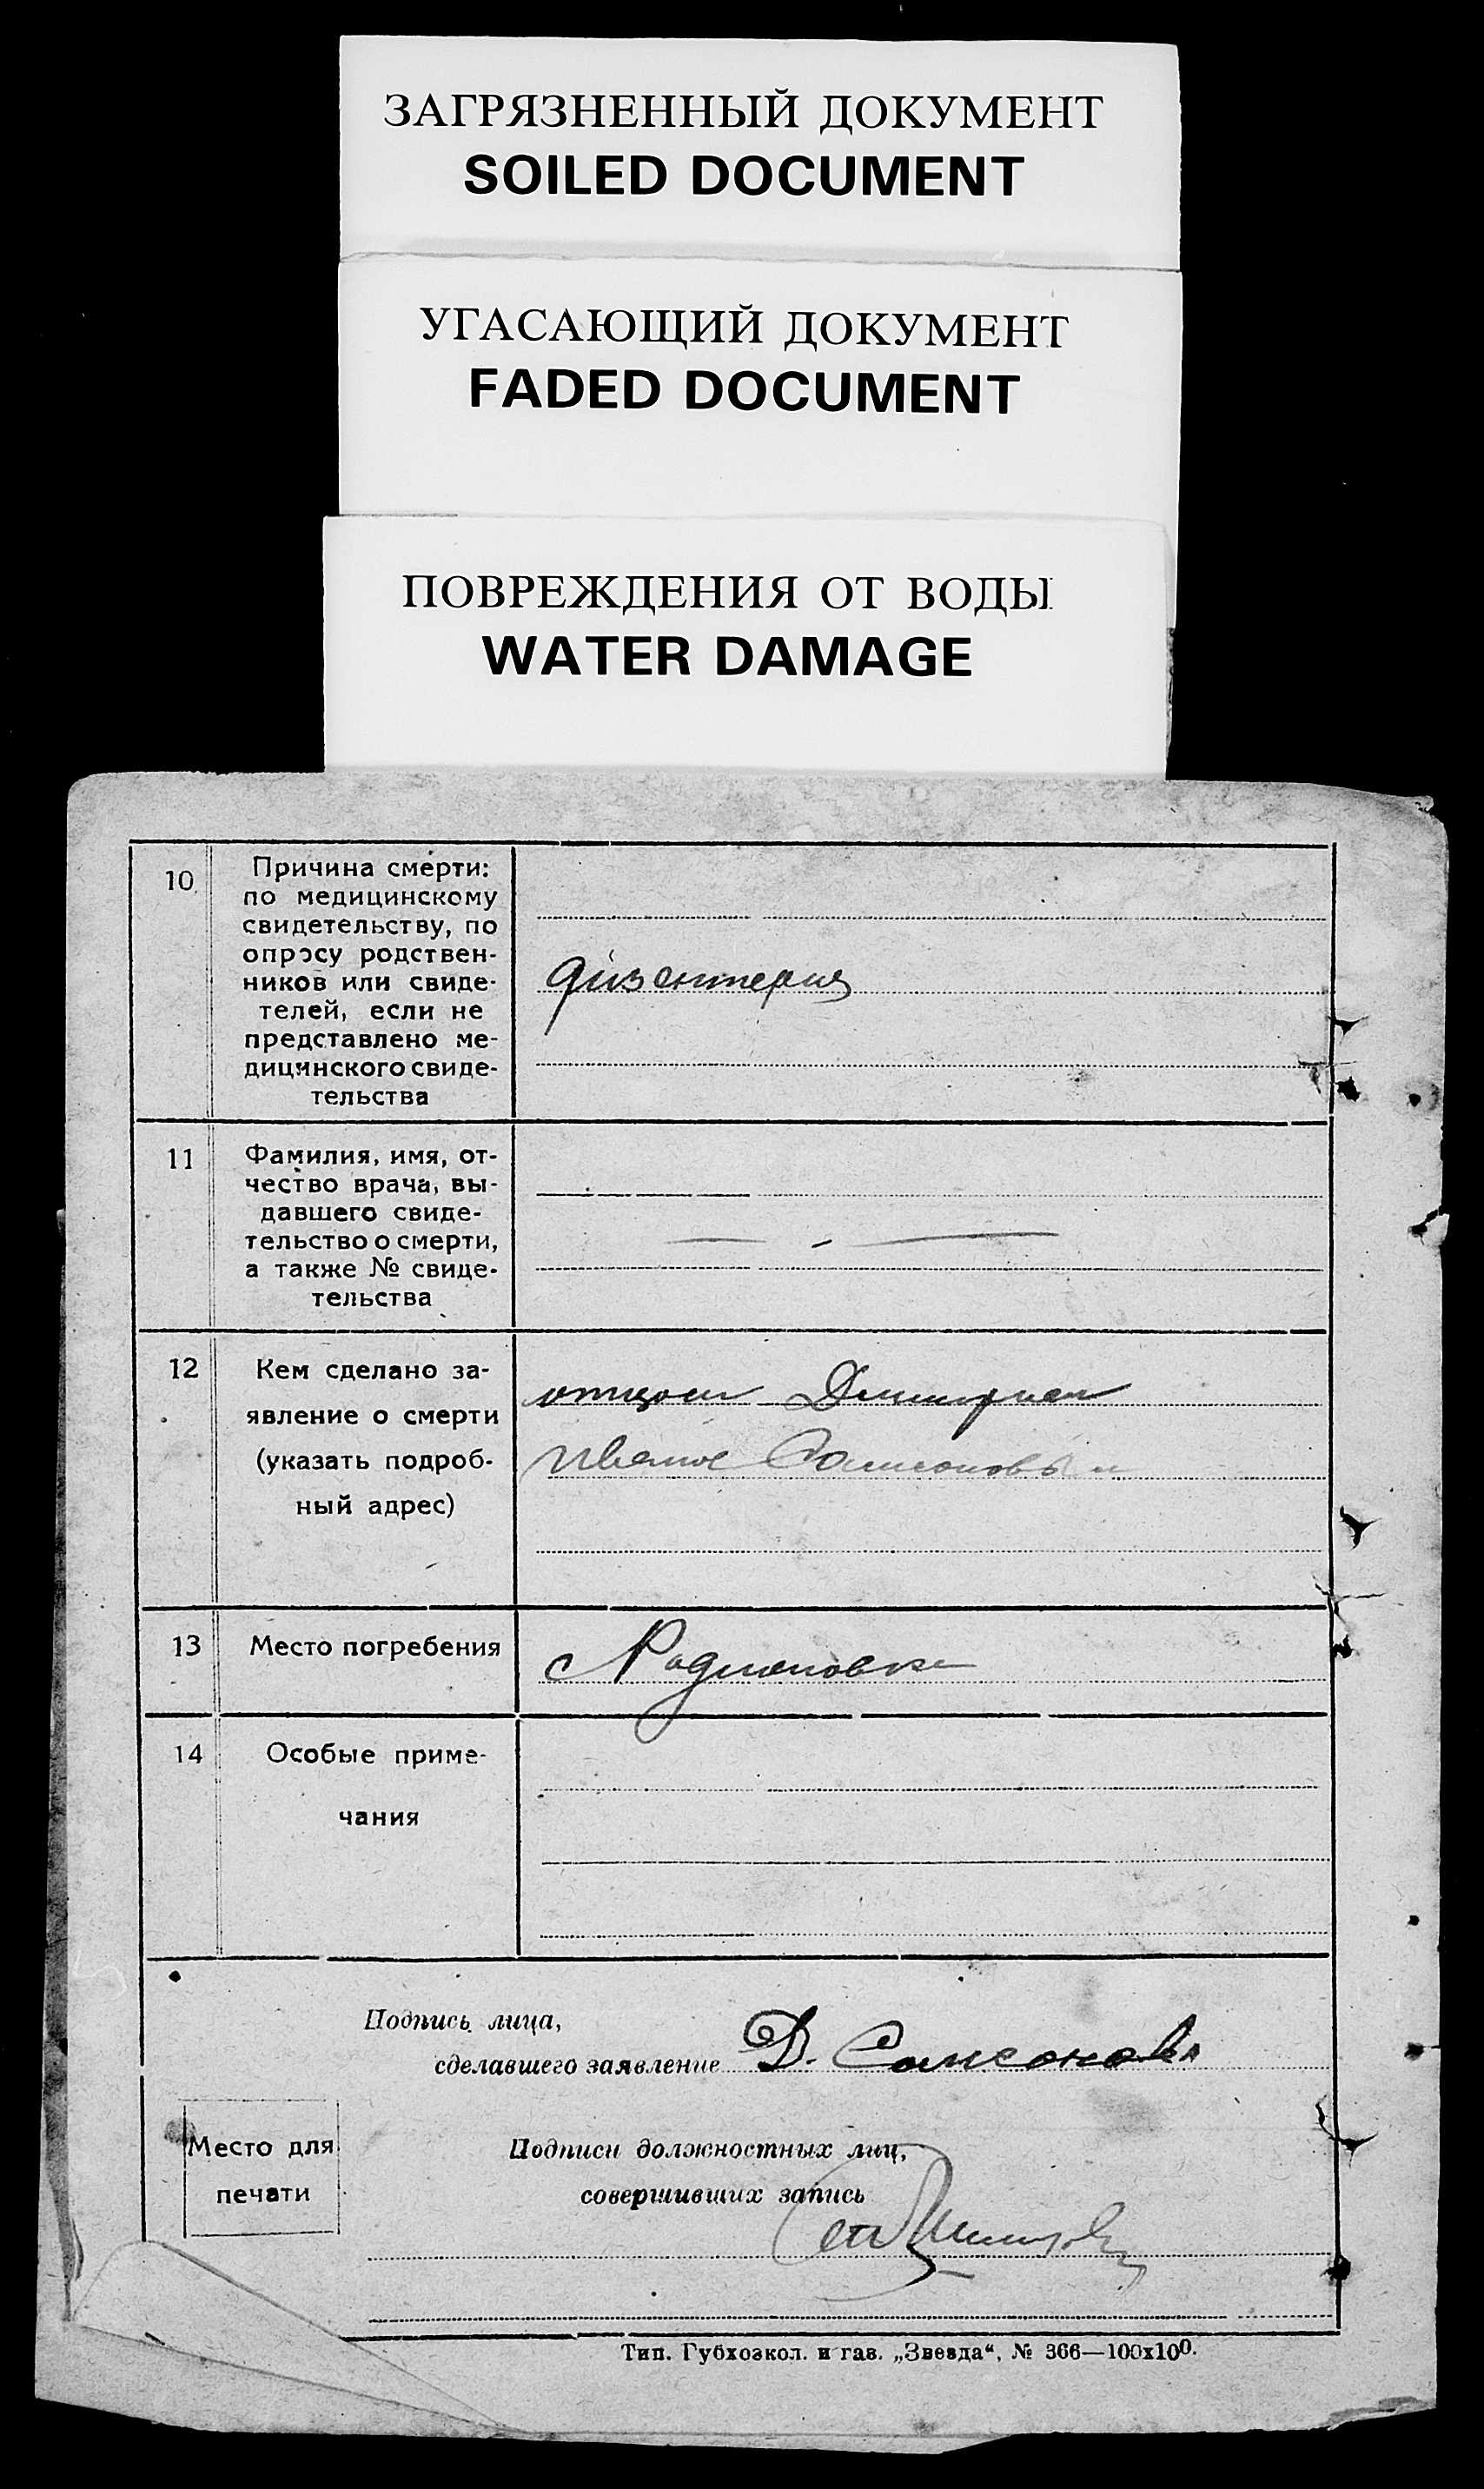 ЗАГРЯЗНЕННЫЙ ДОКУМЕНТ
SOILED DOCUMENT
УГАСАЮЩИЙ ДОКУМЕНТ
FADED DOCUMENT
ПОВРЕЖДЕНИЯ ОТ ВОДЫ
WATER DAMAGE
10
Причина смерти:
по медицинскому
свидетельству, по
опросу родствен-
ников или свиде-
телей, если не
представлено ме-
дицинского свиде-
тельства
дизентерия
11
Фамилия, имя, от-
чество врача, вы-
давшего свиде-
тельство о смерти,
а также № свиде-
тельства
12
Кем сделано за-
явление о смерти
(указать подроб-
ный адрес)
отцом Дмитрием
Самсоновым
13
Место погребения
с Родионовка
14
Особые приме-
чания
Подпись лица,
сделавшего заявление
Д. Самсонов
Место для
печати
Подписи должностных лиц,
совершивших запись
Тип. Губхозкол. и газ. „Звезда“, № 366—100х100.